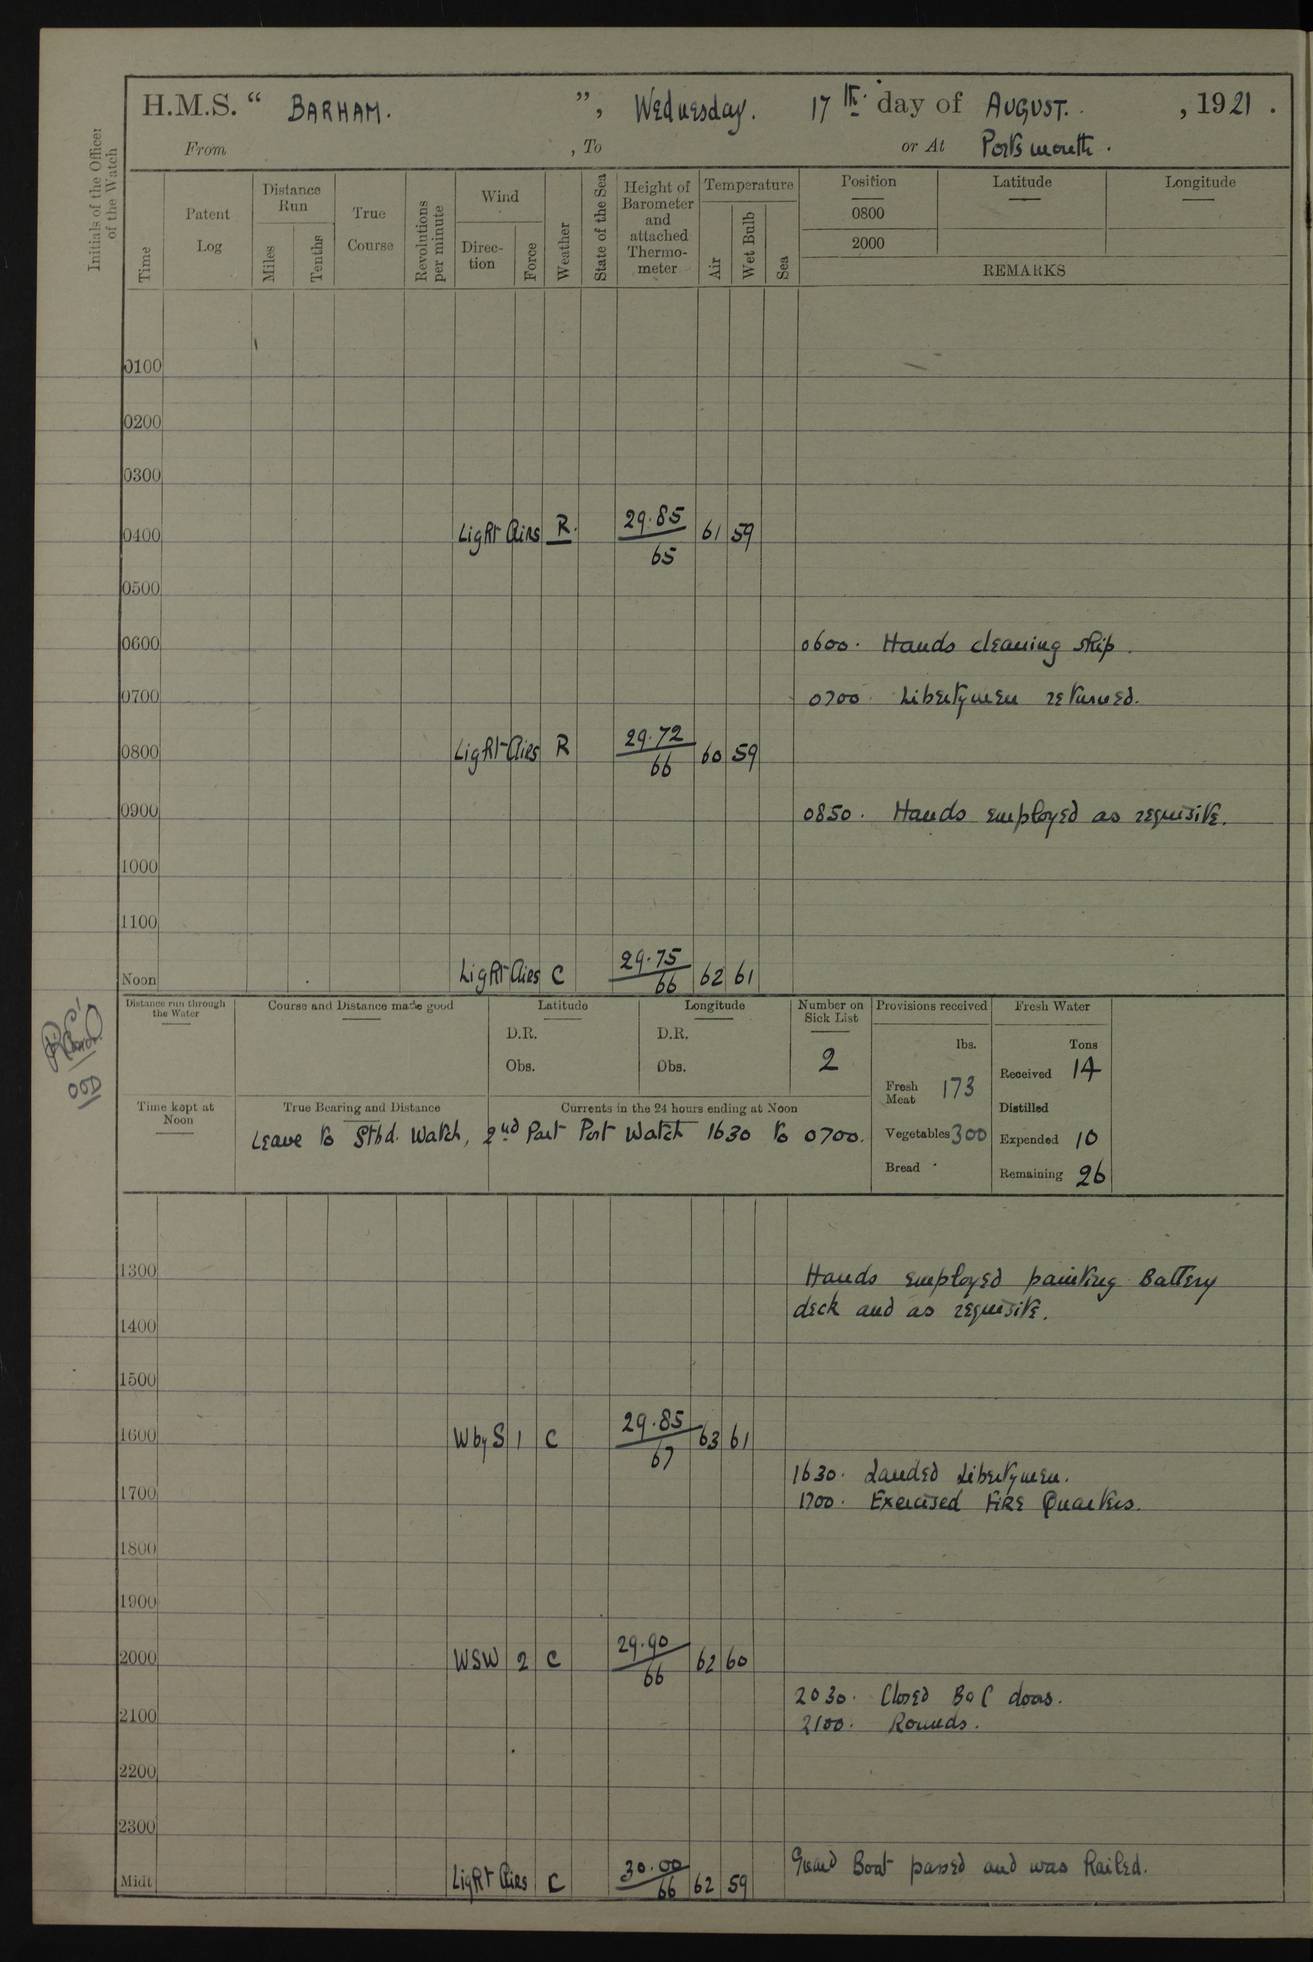 H.M.S. “ BARHAM. ”, Wednesday. 17th. day of AUGUST. , 1921 .
From , To or At Portsmouth .
Initials of the Officer of the Watch
Time
Patent Log
Distance Run
Miles
Tenths
True Course
Revolutions per minute
Wind
Direction
Force
Weather
State of the Sea
Height of Barometer and attached Thermometer
Temperature
Air
Wet Bulb
Sea
Position Latitude Longitude
0800
2000
REMARKS
0100
0200
0300
0400 Light Airs R. 29.85/65 61 59
0500
0600 0600. Hands cleaning ship.
0700 0700. Libertymen returned.
0800 Light Airs R 29.72/66 60 59
0900 0850. Hands employed as requisite.
1000
1100
Noon Light Airs C 29.75/66 62 61
Distance run through the Water
Course and Distance made good
Latitude
D.R.
Obs.
Longitude
D.R.
Obs.
Number on Sick List
2
Provisions received
lbs.
Fresh Meat 173
Vegetables 300
Bread
Fresh Water
Tons
Received 14
Distilled
Expended 10
Remaining 26
OOD
Time kept at Noon
True Bearing and Distance
Currents in the 24 hours ending at Noon
Leave to Stbd. Watch, 2nd Part Port Watch 1630 to 0700.
1300 Hands employed painting Battery
deck and as requisite.
1400
1500
1600 W by S 1 C 29.85/67 63 61
1630. Landed Libertymen.
1700 1700. Exercised FIRE Quarters.
1800
1900
2000 WSW 2 C 29.90/66 62 60
2030. Closed B & C doors.
2100 2100. Rounds.
2200
2300
Guard Boat passed and was hailed.
Midt Light Airs C 30.00/66 62 59